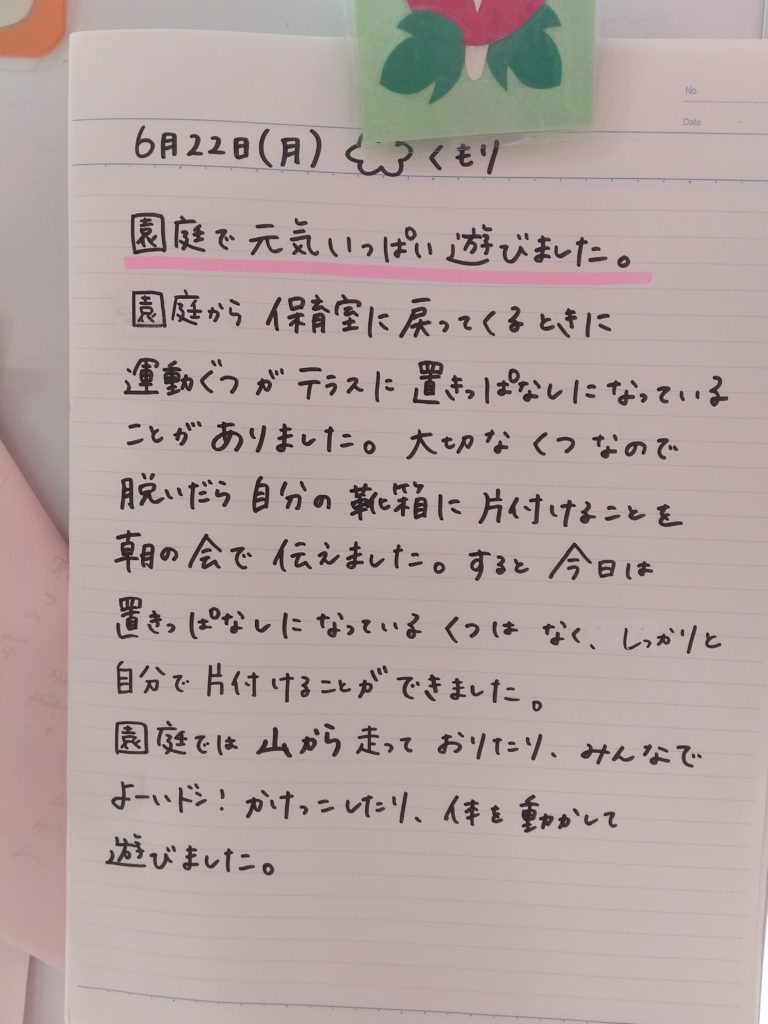 No.
Date
6月22日(月) くもり
園庭で元気いっぱい遊びました。
園庭から保育室に戻ってくるときに
運動ぐつがテラスに置きっぱなしになっている
ことがありました。大切なくつなので
脱いだら自分の靴箱に片付けることを
朝の会で伝えました。すると今日は
置きっぱなしになっているくつはなく、しっかりと
自分で片付けることができました。
園庭では山から走っておりたり、みんなで
よーいドン!かけっこしたり、体を動かして
遊びました。